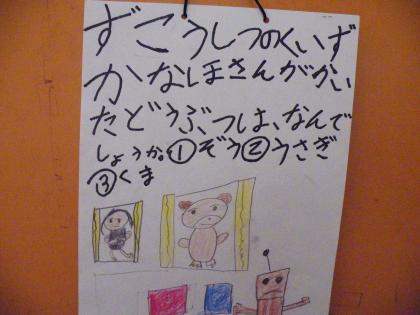 ずこうしつのくいず
かなほさんがかい
たどうぶつは、なんで
しょうか。①ぞう②うさぎ
③くま